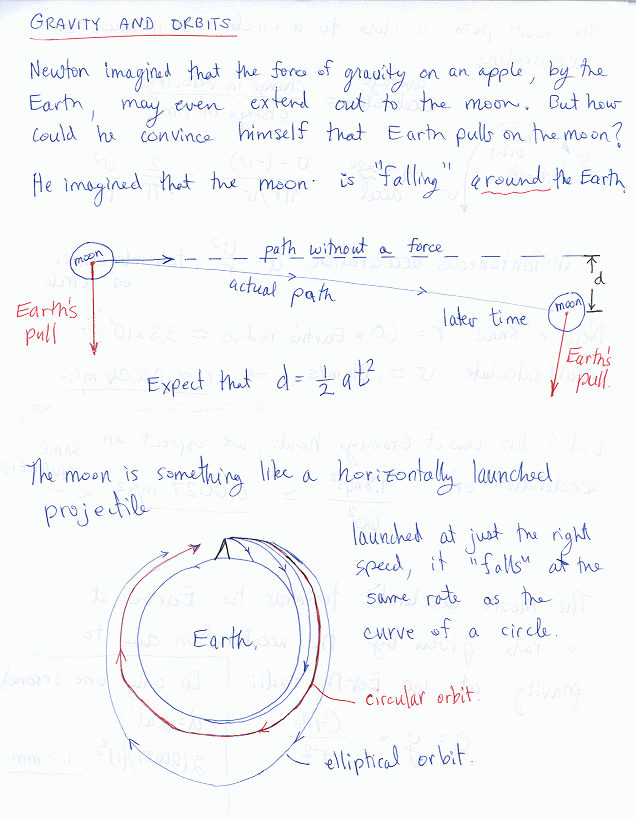 GRAVITY AND ORBITS
Newton imagined that the force of gravity on an apple, by the
Earth, may even extend out to the moon. But how
could he convince himself that Earth pulls on the moon?
He imagined that the moon is "falling" around the Earth.
moon
path without a force
d
actual path
moon
Earth's
pull
later time
Earth's
pull.
Expect that d = ½ at²
The moon is something like a horizontally launched
projectile
launched at just the right
speed, it "falls" at the
same rate as the
curve of a circle.
Earth.
circular orbit.
elliptical orbit.